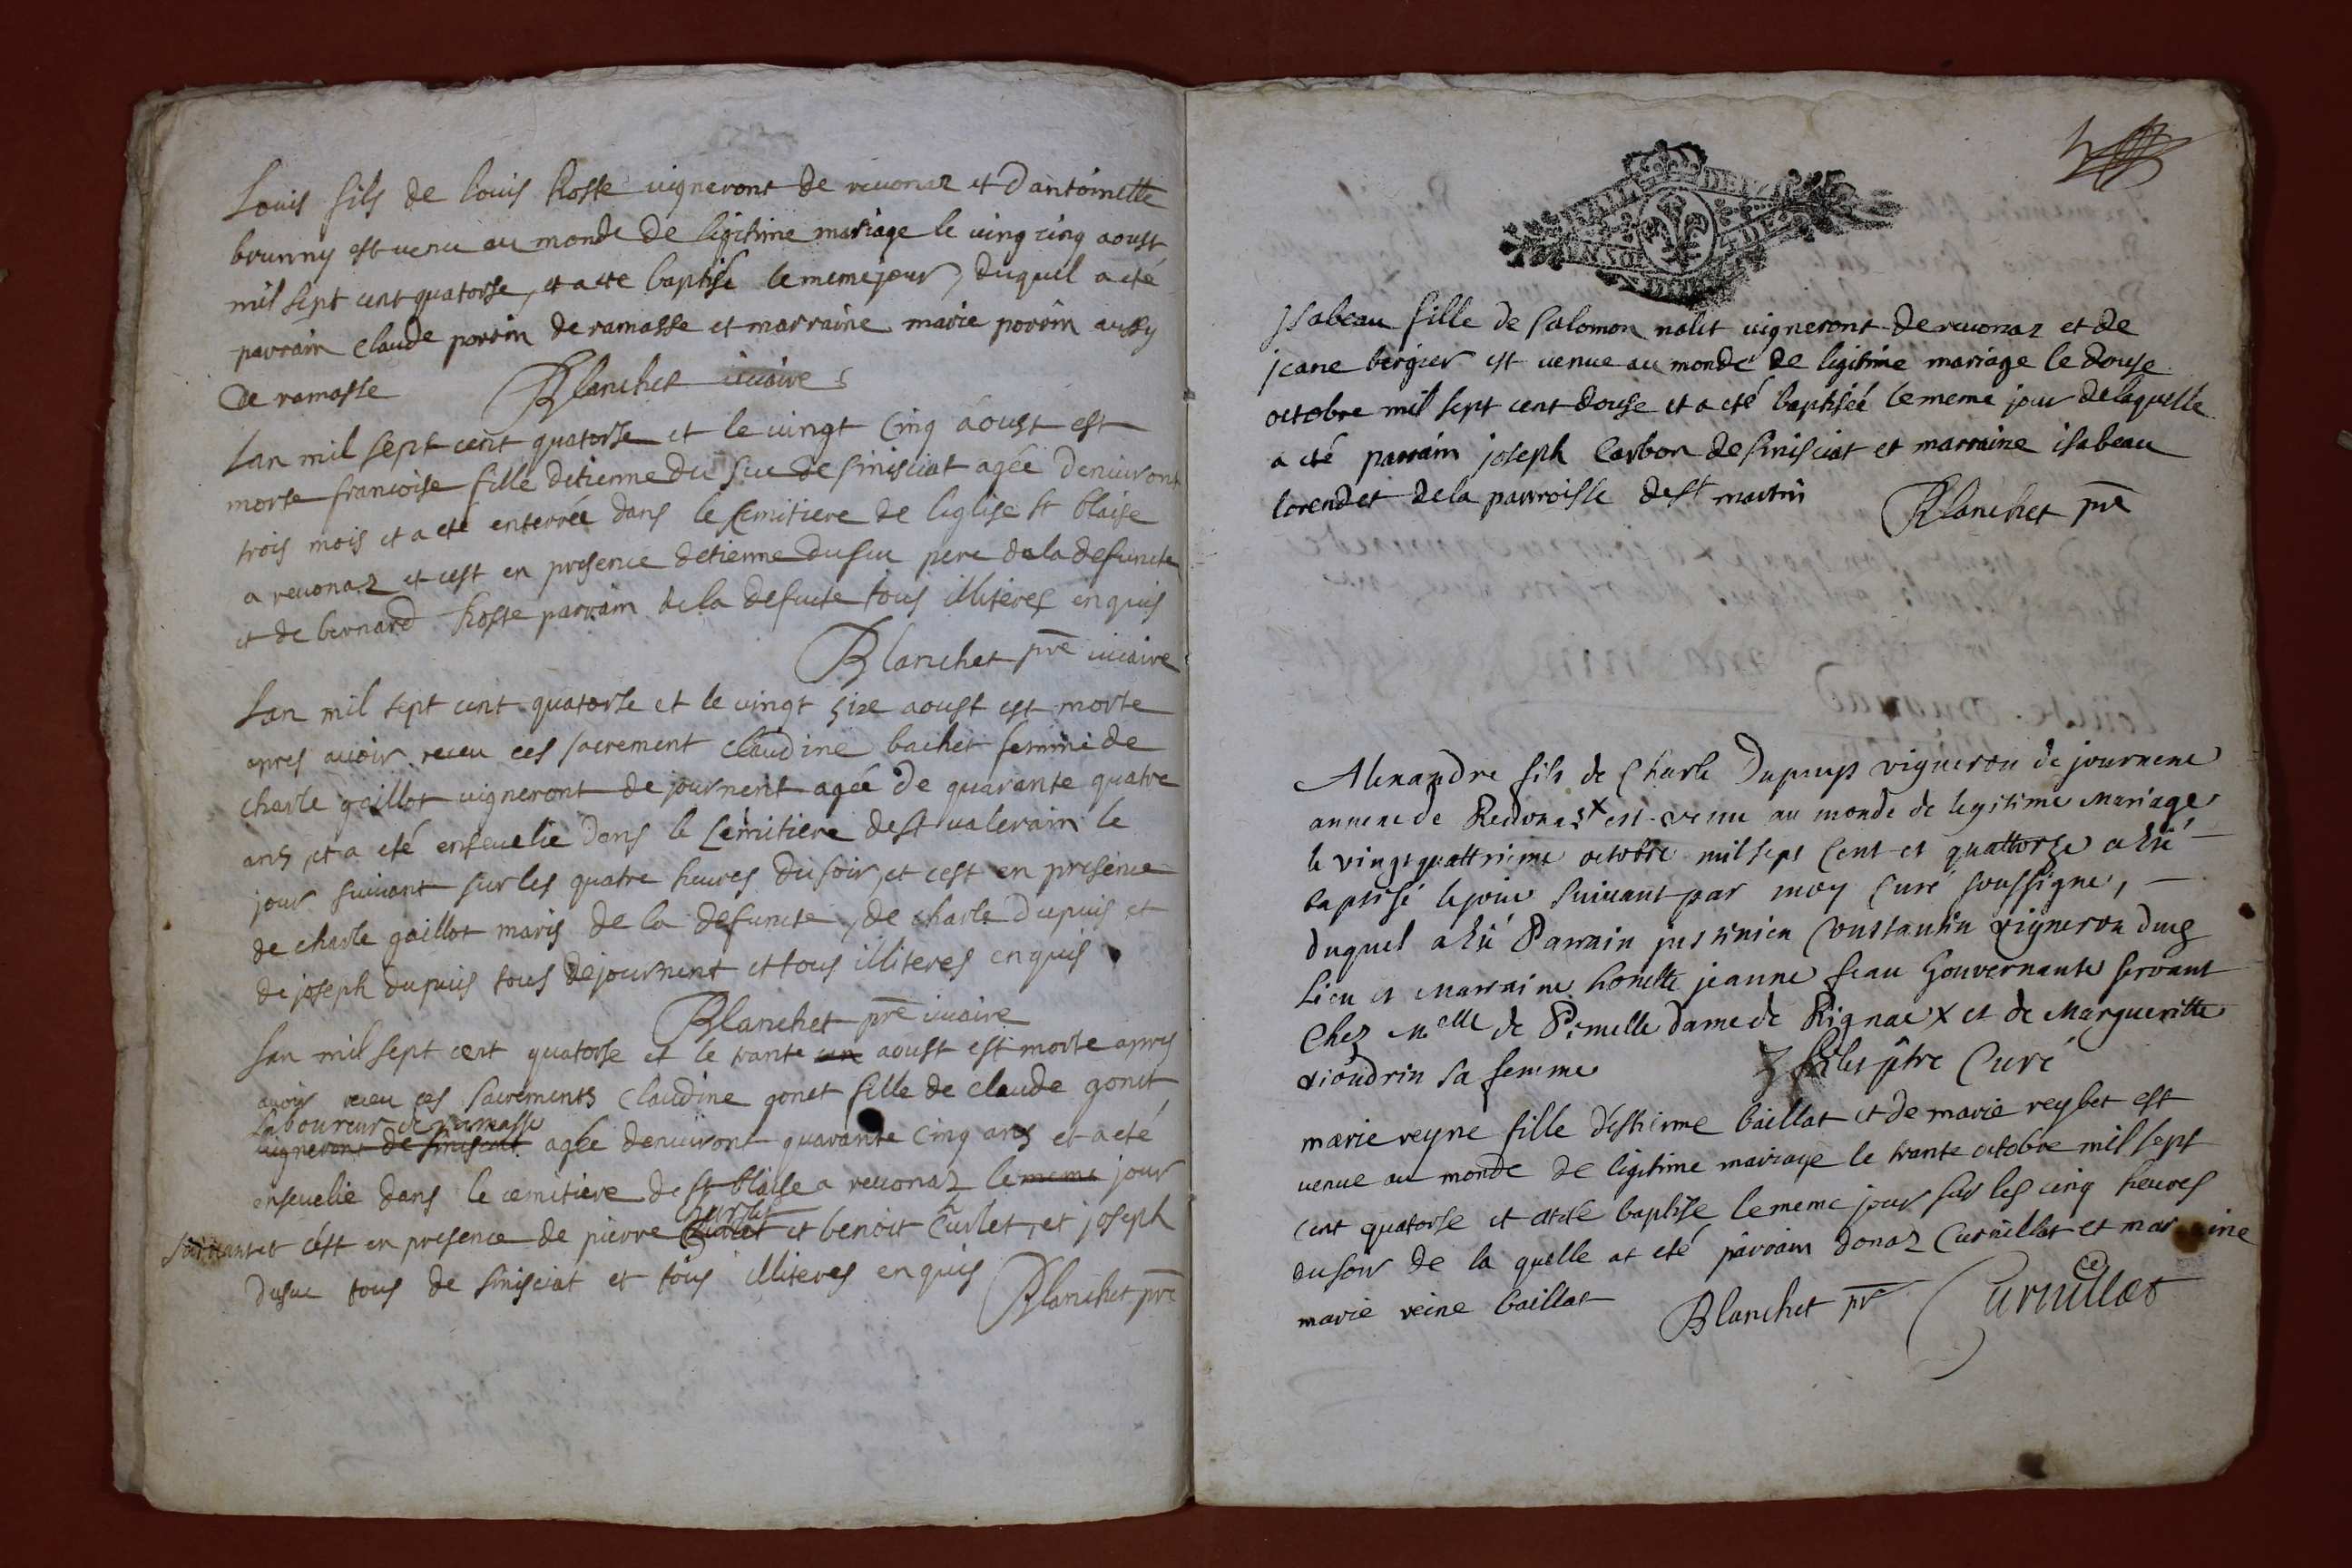 Louis fils de louis hoste vigneront de revonaz et dantoinette
brunny est venu au monde de ligitime mariage le vingt cinq aoust
mil sept cent quatorse, et a ete baptisé le meme jour, duquel a eté
parrain claude porrin de ramasse et marraine marie porrin aussy
de ramasse Blanchet vicaire
Lan mil sept cent quatorse et le vingt cinq aoust est
morte francoise fille detienne du suc de sinisciat agée denviront
trois mois et a eté enterrée dans le semitiere de leglise st blaise
a revonaz et cest en presence detienne dusuc pere de la defuncte
et de bernard hoste parrain de la defucte tous illiteres enquis
Blanchet pre vicaire
Lan mil sept cent quatorse et le vingt size aoust est morte
apres avoir receu ces sacrement claudine bachet femme de
charle gaillot vigneront de journent agée de quarante quatre
ans, et a eté ensevelie dans le semitiere de st valerain le
jour suivant sur les quatre heures du soir, et cest en presence
de charle gaillot maris de la defuncte, de charle dupuis et
de joseph dupuis tous de journent et tous illiteres enquis
Blanchet pre vicaire
Lan mil sept cent quatorse et le trante un aoust est morte apres
avoir receu ces sacrements claudine gonet fille de claude gonet
laboureur de ramasse
vigneront de sinisciat agée denviront quarante cinq ans et a eté
ensevelie dans le cemitiere de st blaise a revonaz le meme jour
curlet
suivant et cest en presence de pierre curlet et benoit curlet, et joseph
dusuc tous de sinisciat et tous illiteres enquis Blanchet pre
Isabeau fille de salomon nalet vigneront de revonaz et de
jeane bergier est venue au monde de ligitime mariage le douse
octobre mil sept cent douse et a eté baptisée le meme jour de laquelle
a eté parrain joseph Carbon de sinisciat et marraine isabeau
lorendet de la parroisse de st martin Blanchet pre
Alexandre fils de Charle Dupuys vigneron de journene
annexe de Revonas x est venu au monde de legitime mariage
le vingt quattrieme octobre mil sept cent et quattorze a été
baptisé le jour suivant par moy curé soussigne,
duquel a été Parrain justinien Constantin vigneron dud
Lieu et Marraine honette jeanne feau Gouvernante servant
Chez Melle de Pimelle dame de Rignae x et de Margueritte
viondrin sa femme ptre Curé
marie reyne fille destienne baillat et de marie reybet est
venue au monde de ligitime mariage le trante octobre mil sept
cent quatorse et at ete baptise le meme jour sur les cinq heures
du soir de la quelle at eté parrain donaz Curnillat et marraine
marie reine baillat Blanchet pr Curnillat